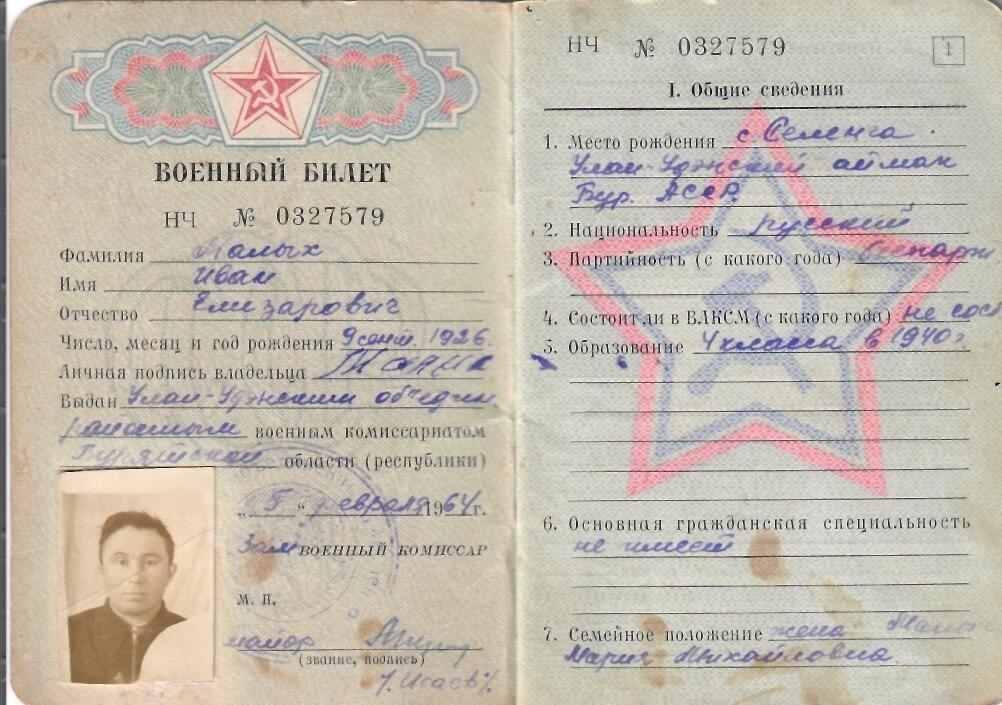 ВОЕННЫЙ БИЛЕТ
НЧ № 0327579
Фамилия Малых
Имя Иван
Отчество Елизарович
Число, месяц и год рождения 9 сент. 1926.
Личная подпись владельца
Выдан Улан-Удэнским объедин
районным военным комиссариатом
Бурятской области (республики)
„5“ февраля 1964 г.
Зам ВОЕННЫЙ КОМИССАР
М. П.
майор
(звание, подпись)
/Исаев/
НЧ № 0327579
1
I. Общие сведения
1. Место рождения с Селенга
Улан-Удэнский аймак
Бур. АССР.
2. Национальность русский
3. Партийность (с какого года)
4. Состоит ли в ВЛКСМ (с какого года) не сос
5. Образование 4 класса в 1940 г.
6. Основная гражданская специальность
не имеет
7. Семейное положение жена Малы
Мария Михайловна